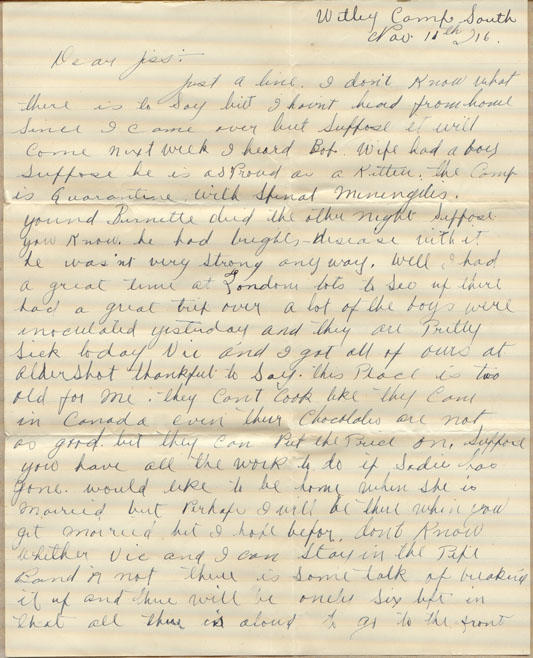 Witley Camp South
Nov. 11th 1916.
Dear Jess:-
Just a line. I don't know what
there is to say but I havnt heard from home
since I came over but suppose it will
come next week I heard Bob. Wife had a boy
suppose he is as Proud as a Kitten. the Camp
is Quarantine with Spinal Minengites.
yound Burnette died the other night suppose
you Know. he had brights-disease with it
he was'nt very strong anyway. Well I had
a great time at London lots to see up there
had a great trip over a lot of the boys were
inoculated yesterday and they are Pretty
sick today Vic and I got all of ours at
Aldershot thankful to Say. this Place is too
old for me. they Cant Cook like they Can
in Canada even their Chocolates are not
as good. but they can Put the Price on. Suppose
you have all the work to do if Sadie has
gone. would like to be home when she is
married but Perhaps I will be there when you
get married but I hope befor. dont Know
whether Vic and I can Stay in the Pipe
Band or not there is some talk of breaking
it up and there will be onely Six left in
that all there is aloud to go to the front